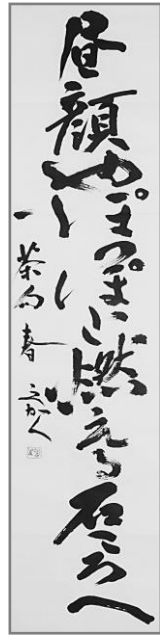 昼顔やぽつぽと燃える石ころへ
一茶句 春 かく